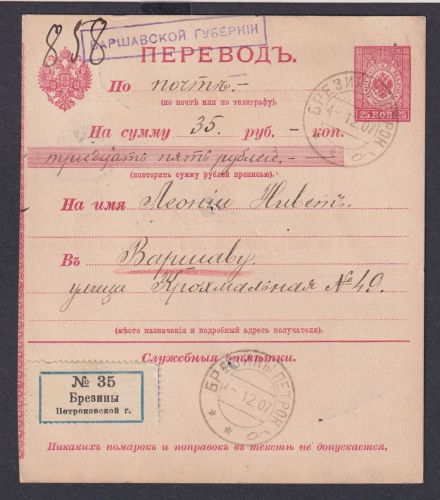 858
ВАРШАВСКОЙ ГУБЕРНІИ
ПЕРЕВОДЪ.
По почтѣ.-
(по почтѣ или по телеграфу).
25 КОП. 25
На сумму 35. руб. - коп.
тридцать пять рублей. -
(повторить сумму рублей прописью).
На имя Леонiи Ниветъ
Въ Варшаву.
улица Крохмальная №49.
(мѣсто назначенія и подробный адресъ получателя).
Служебныя отмѣтки.
БРЕЗИНЫ ПЕТРОК. Г.
4-12.07
БРЕЗИНЫ ПЕТРОК. Г.
4-12.07
№ 35
Брезины
Петроковской г.
Никакихъ помарокъ и поправокъ въ текстѣ не допускается.